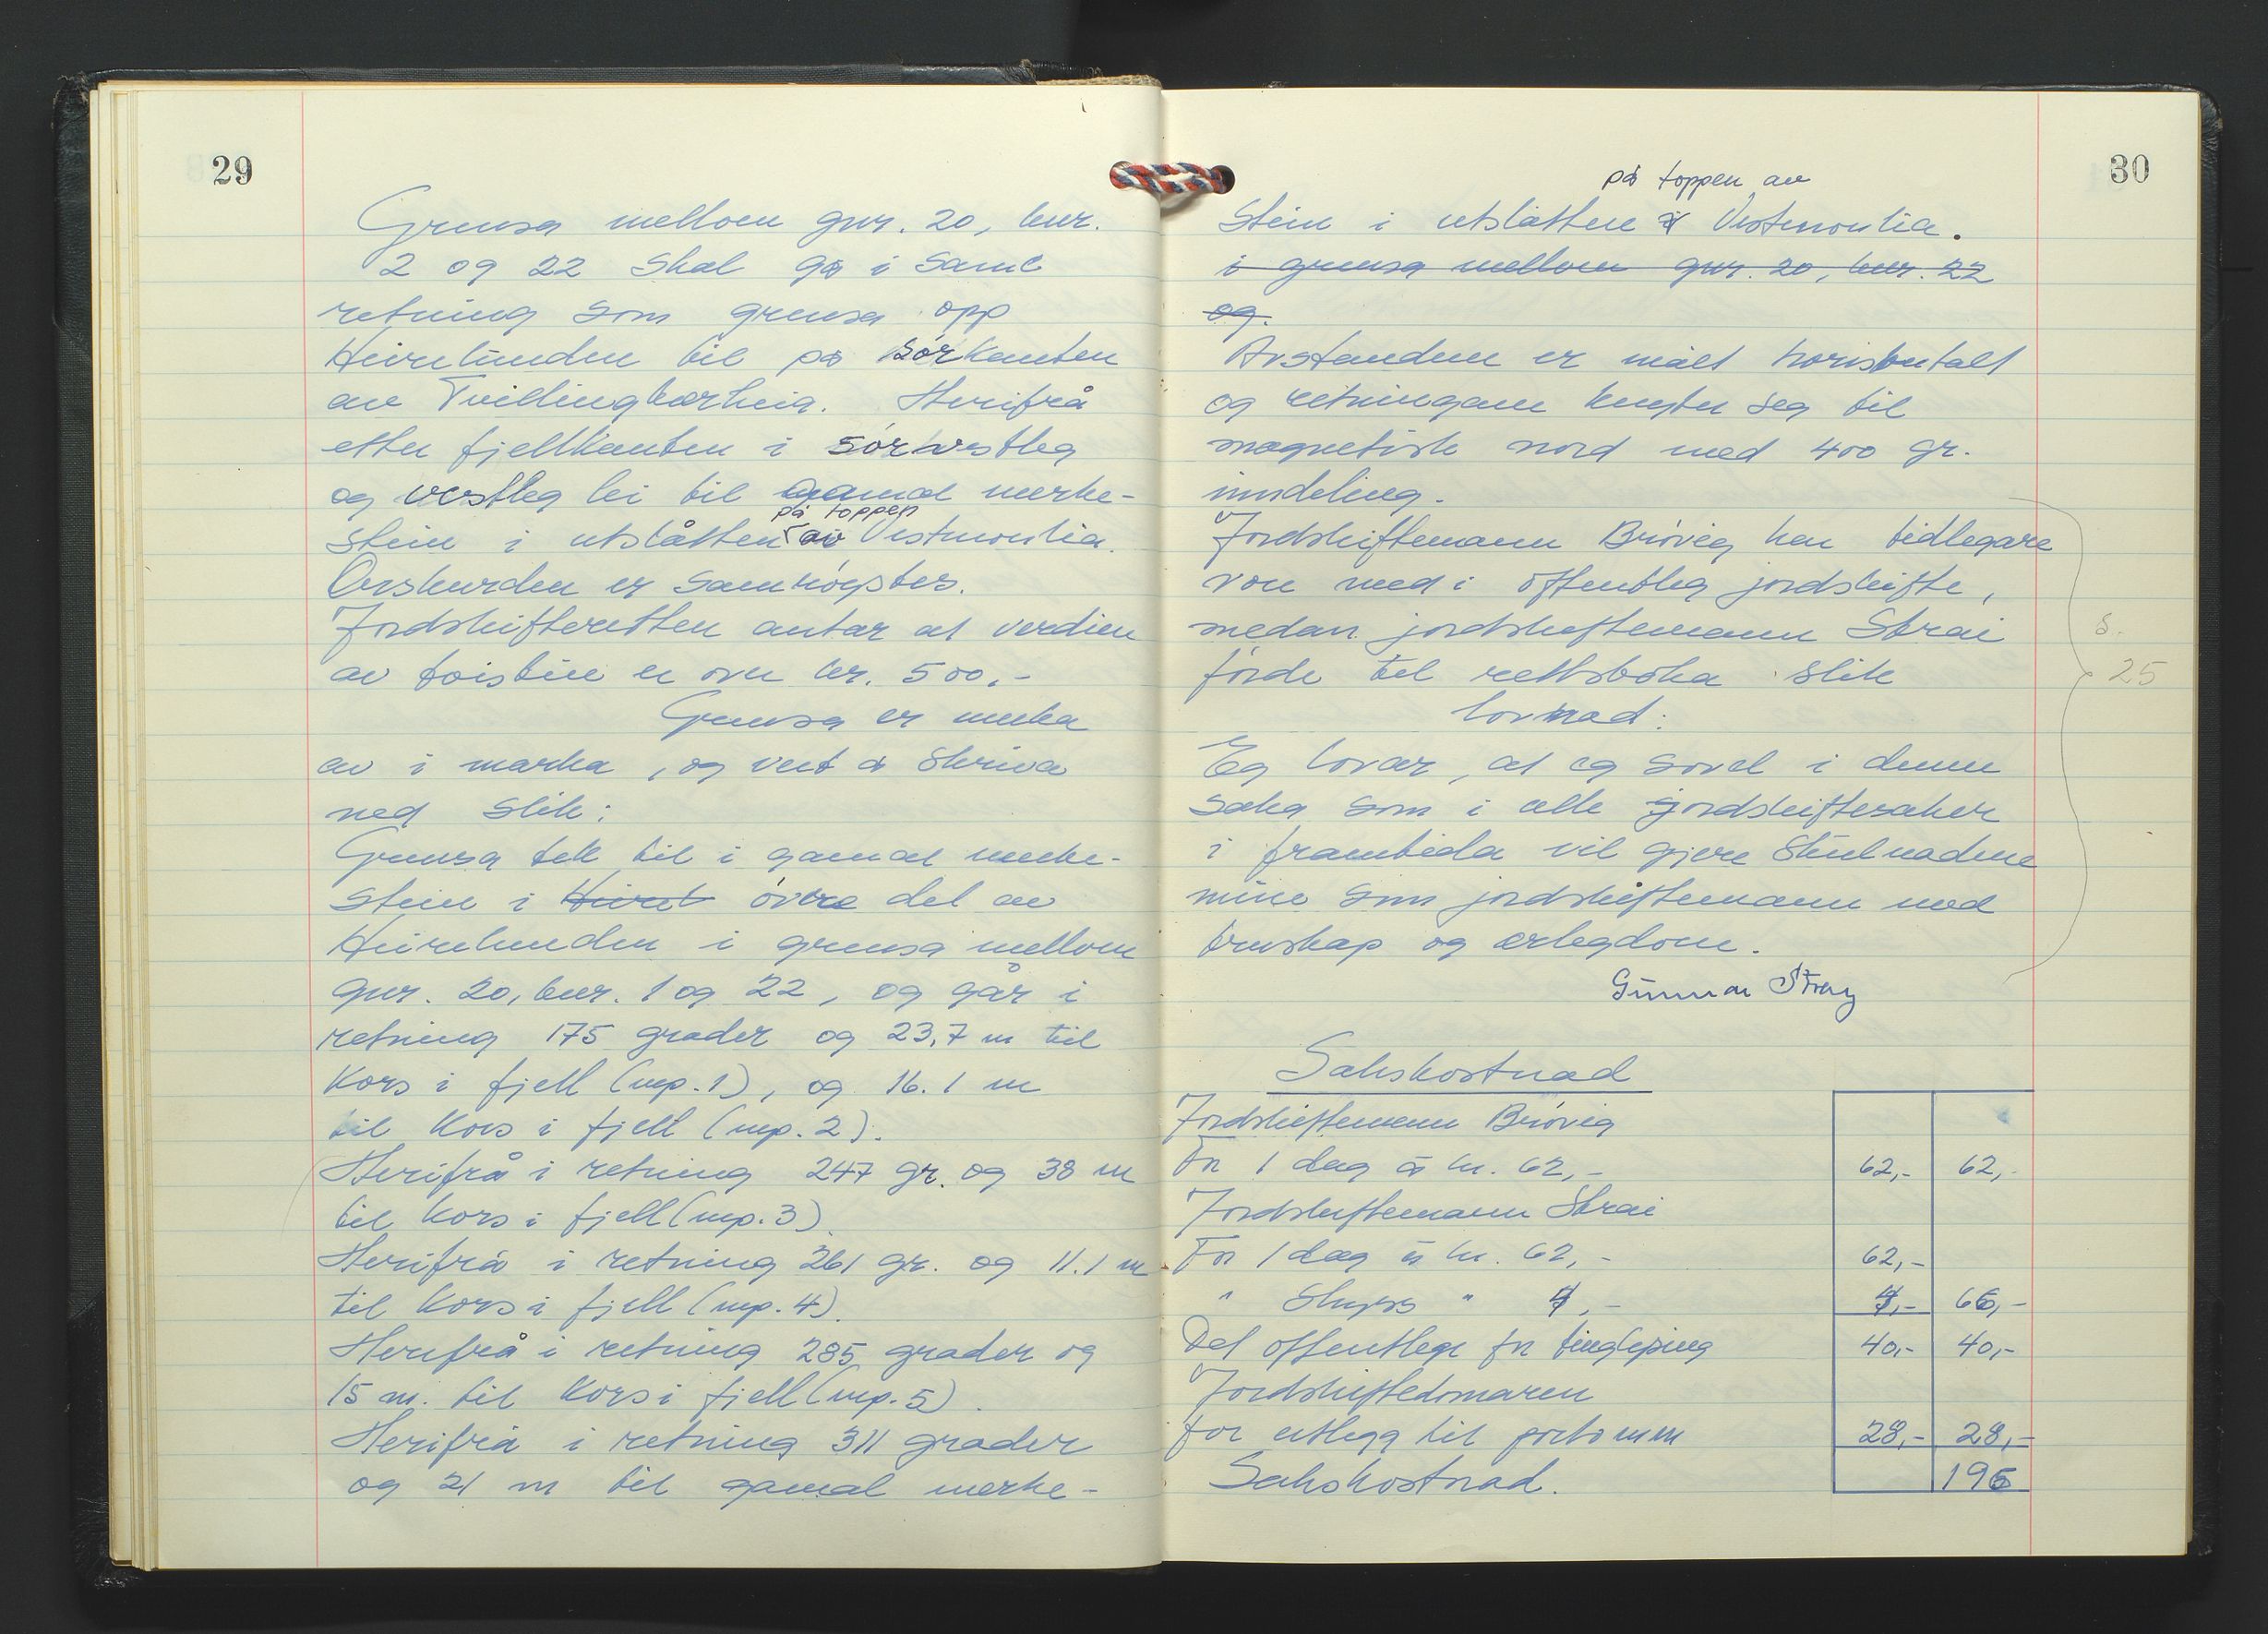 29
Grensa mellom gnr. 20, bnr.
2 og 22 skal gå i same
retning som grensa opp
Heirelunden til på sørkanten
av Tvillingkørheia. Herifrå
etter fjellkanten i sørvestleg
og vestleg lei til gamal merke-
på toppen
stein i utslåtten av Vestmonlia.
Orskurden er samrøystes.
Jordskifteretten antar at verdien
av toistin er over kr. 500,-
Grensa er merka
av i marka, og vert å skriva
ned slik:
Grensa tek til i gamal merke-
stein i Heirel øvre del av
Heirelunden i grensa mellom
gnr. 20, bnr. 1 og 22, og går i
retning 175 grader og 23,7 m til
kors i fjell (mp. 1), og 16.1 m
til kors i fjell (mp. 2).
Herifrå i retning 247 gr. og 38 m
til kors i fjell (mp. 3).
Herifrå i retning 261 gr. og 11.1 m
til kors i fjell (mp. 4).
Herifrå i retning 285 grader og
15 m. til kors i fjell (mp. 5).
Herifrå i retning 311 grader
og 21 m til gamal merke-
30
på toppen av
stein i utslåtten i Vestmonlia.
i grensa mellom gnr. 20, bnr. 22
og.
Avstanden er målt horisontalt
og retningane knyter seg til
magnetisk nord med 400 gr.
inndeling.
Jordskiftemann Brøvig har tidlegare
vore med i offentleg jordskifte,
medan jordskiftemann Strai
førde til rettsboka slik
lovnad:
Eg lovar, at eg sovel i denne
saka som i alle jordskiftesaker
i framtida vil gjere skulnadene
mine som jordskiftemann med
truskap og ærlegdom.
s.
25
Gunnar Stray
Sakskostnad
Jordskiftemann Brøvig
For 1 dag à kr. 62,- 62,- 62,-
Jordskiftemann Strai
For 1 dag à kr. 62,- 62,-
" skyss " 4,- 4,- 66,-
Det offentlege for tinglysing 40,- 40,-
Jordskiftedomaren
for utlegg til porto m m 28,- 28,-
Sakskostnad. 196